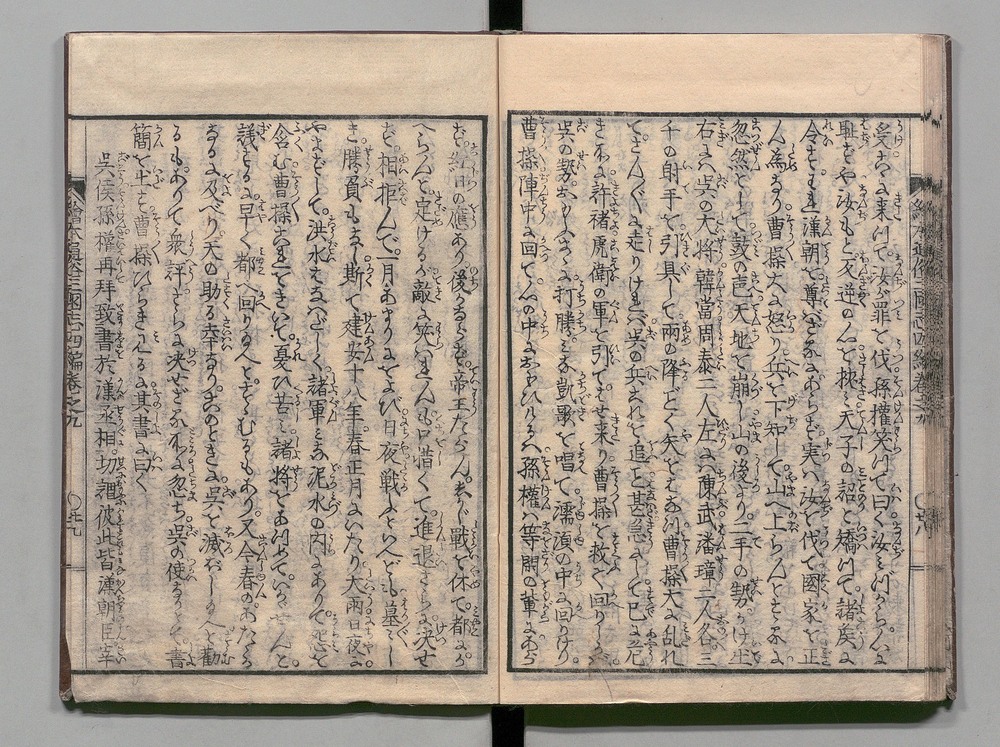 受おに来れり汝が罪を伐孫權笑つて曰く汝みづから人に
耻ざや汝もと久逆の心を抱き天子の詔と矯つて諸矦に
令をもれ漢朝を尊べざるにあらず実ハ汝を伐て國家を正
ん為なり曹操大に怒り兵を下知して山へ上らんとする所に
忽然として鼓の音天地を崩し山の後より二手の勢かけ出
右ハ呉の大將韓當周泰二人左ハ陳武潘璋二人各三
千の射手を引具して雨の降ごとく矢をはなつ曹操大に乱れ
てさんざんに走りけれバ呉の兵これを追こと甚急にして已に危
き所に許禇虎衛の軍を引てはせ来り曹操を救て回りしかバ
呉の勢おもふさま打勝ミな凱歌を唱て濡須の中に回りけり
曹操陣中に回て心の中におもひけるハ孫權ハ等閑の輩にあらず
紅日の應あり後かならず帝王たらんしかじ戰を休て都にか
へらんと定けるが敵に笑はれんも口惜くて進退さらに決せ
ず相拒んで一月あまりにおよび日夜戰ふといへども墓々し
き勝負もなし斯て建安十八年春正月にいたり大雨日夜に
やまずして洪水になべたしく諸軍みな泥水の内にありて恐を
含む曹操これについて憂ひ苦ミ諸將をあつめていかゞせんと
議するに早く都へ回り給へとすゝむるもあり又今春のあたゝか
なるに及べり天の助る幸なりこのときに呉を滅ぼし給へと勸
るもありて衆評さらに決せざる所に忽ち呉の使なりとて書
簡を上る曹操ひらき見るに其書に曰く
呉侯孫權再拜致書於漢丞相切謂彼此皆漢朝臣宰
繪本通俗三國志四編卷之九